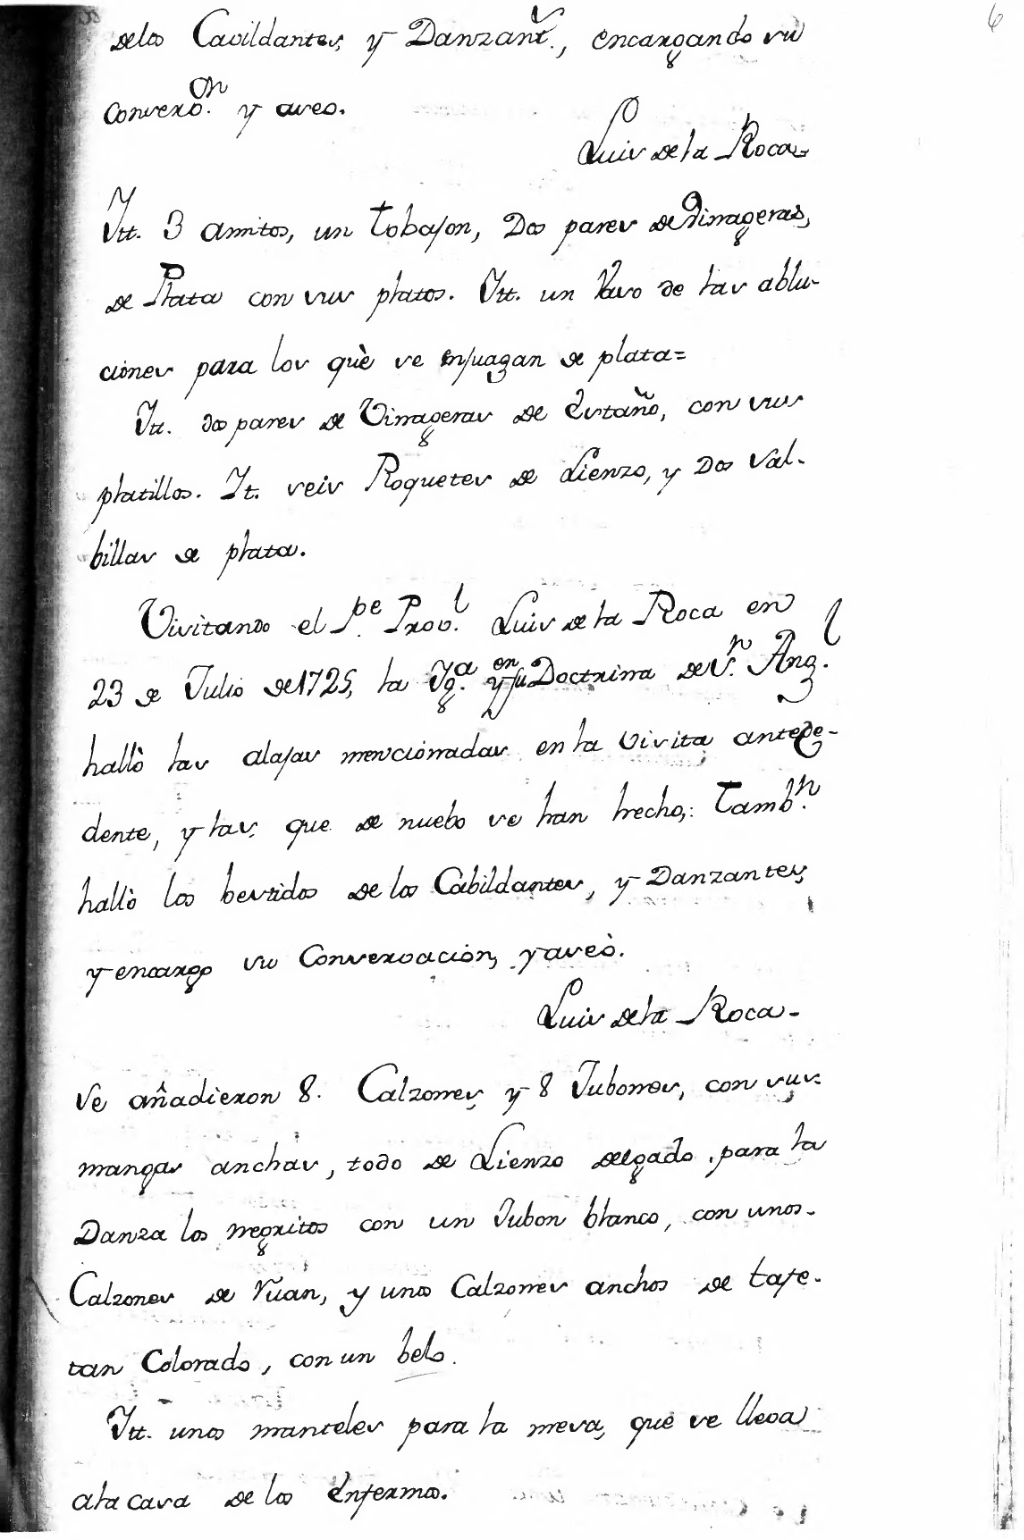 6
delos Cavildantes, y Danzant.s, encargando su
converso.on y aseo.
Luis de la Roca
Itt. 3 amitos, un tobajon, Dos pares de Vinageras,
de Plata con sus platos. Itt. un Vaso de las ablu-
ciones para los què se enjuagan de plata=
Itt. dos pares de Vinageras de Estaño, con sus
platillos. It. seis Roquetes de Lienzo, y Dos Sal-
billas de plata.
Visitando el P.pe Prov.l Luis de la Roca en
23 de Julio de 1725, la Ig.a en ysu Doctrina de S.n Ang.l
hallò las alajas mencionadas en la visita antece-
dente, y las, que de nuebo se han hecho,: Tamb.n
hallò los bestidos de los Cabildantes, y Danzantes,
y encargo su Conversoacion, y aseò.
Luis de la Roca-
Se añadieron 8. Calzones, y 8 Jubones, con sus
mangas anchas, todo de Lienzo delgado para la
Danza los negritos con un Jubon blanco, con unos-
Calzones de Ruan, y unos Calzones anchos de tafe-
tan Colorado, con un belo.
Itt. unos manteles para la mesa, què se lleva
ala casa de los Enfermos.